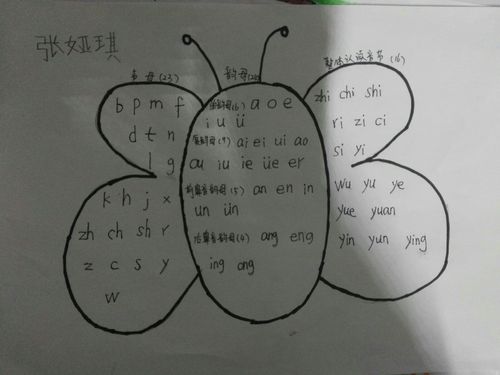 张娅琪
声母(23)
b p m f
d t n
l g
k h j x
zh ch sh r
z c s y
w
韵母(24)
单韵母(6) a o e
i u ü
复韵母(9) ai ei ui ao
ou iu ie üe er
前鼻音韵母(5) an en in
un ün
后鼻音韵母(4) ang eng
ing ong
整体认读音节(16)
zhi chi shi
ri zi ci
si yi
wu yu ye
yue yuan
yin yun ying